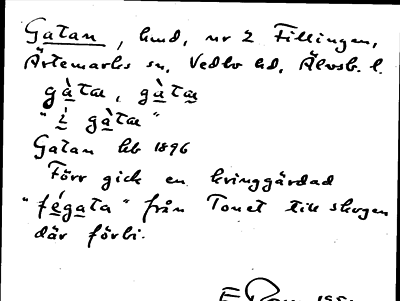 Gatan, hmd, nr 2 Fillingen,
Ärtemarks sn, Vedbo hd, Älvsb. l.
gàta, gàta
"í gàta"
Gatan hb 1896
Förr gick en kringgärdad
"fégata" från Tonet till skogen
där förbi.